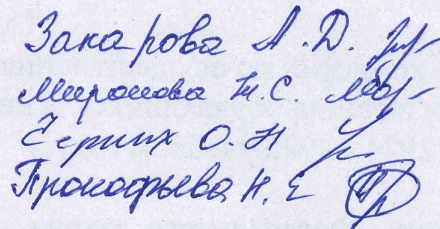 Закарова А. Д.
Миронова Н. С.
Черных О. Н
Прокофьева Н. Е